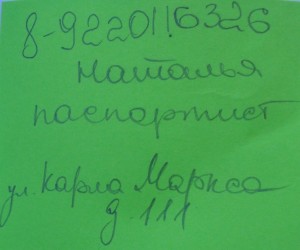 8-9220116326
Наталья
паспортист
ул. Карла Маркса
д. 111